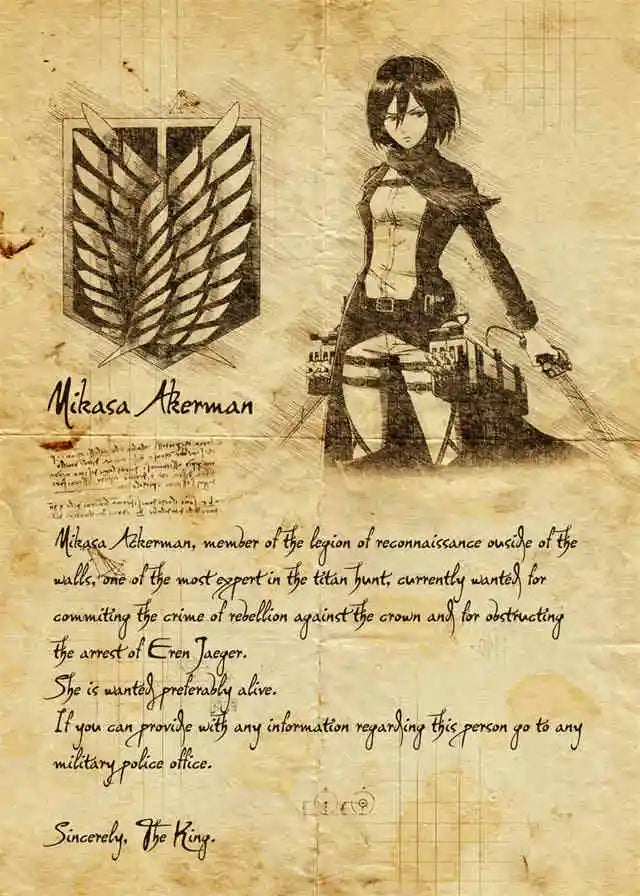 Mikasa Akerman
Mikasa Ackerman, member of the legion of reconnaissance ouside of the
walls, one of the most expert in the titan hunt, currently wanted for
commiting the crime of rebellion against the crown and for obstructing
the arrest of Eren Jaeger.
She is wanted preferably alive.
If you can provide with any information regarding this person go to any
military police office.
Sincerely, The King.